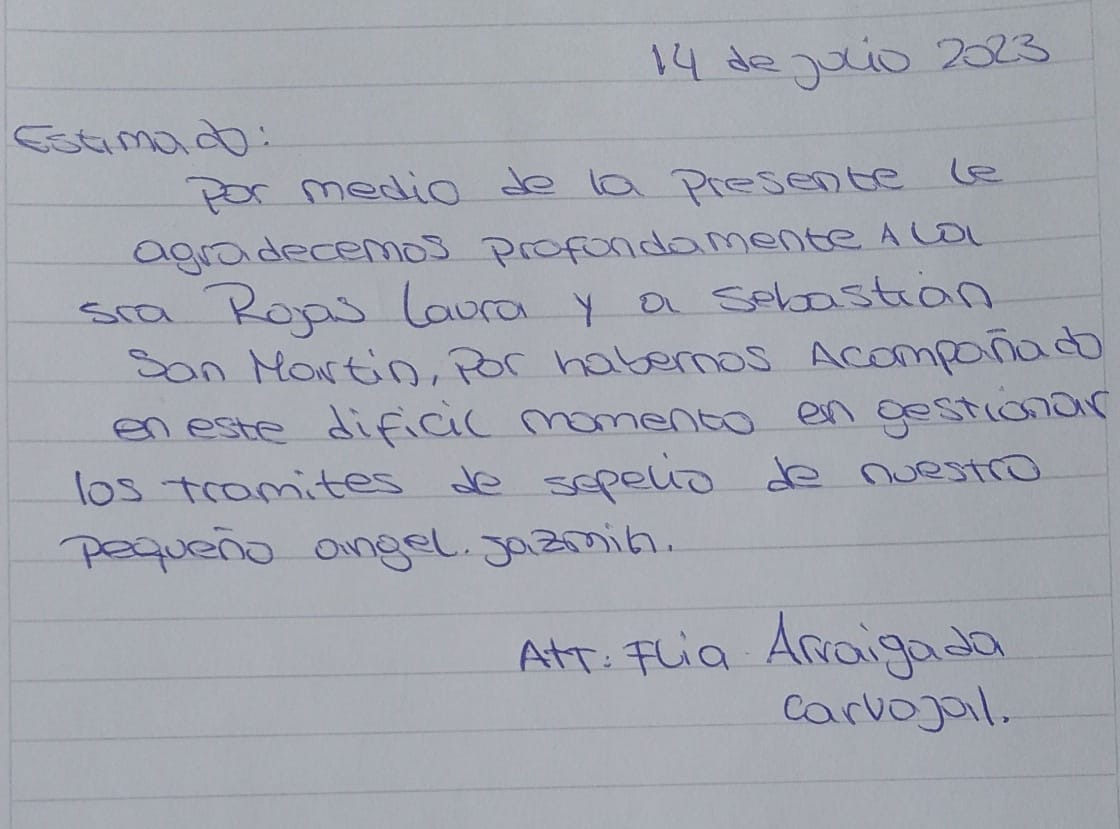 14 de julio 2023
Estimado:
Por medio de la presente le
agradecemos profundamente A la
sra Rojas Laura y a Sebastian
San Martin, Por habernos Acompañado
en este dificil momento en gestionar
los tramites de sepelio de nuestro
pequeño angel. Jazmin.
Att: Flia. Arraigada
Carvajal.